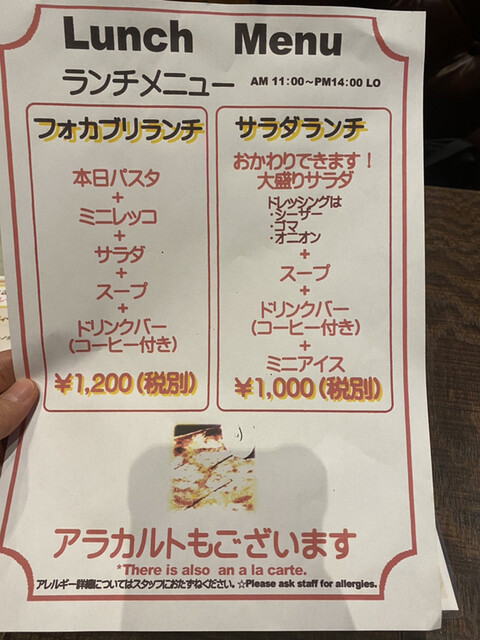 Lunch Menu
ランチメニュー AM 11:00~PM14:00 LO
フォカブリランチ
本日パスタ
+
ミニレッコ
+
サラダ
+
スープ
+
ドリンクバー
(コーヒー付き)
¥1,200(税別)
サラダランチ
おかわりできます!
大盛りサラダ
ドレッシングは
・シーザー
・ゴマ
・オニオン
+
スープ
+
ドリンクバー
(コーヒー付き)
+
ミニアイス
¥1,000(税別)
アラカルトもございます
*There is also an a la carte.
アレルギー詳細についてはスタッフにおたずねください。☆Please ask staff for allergies.